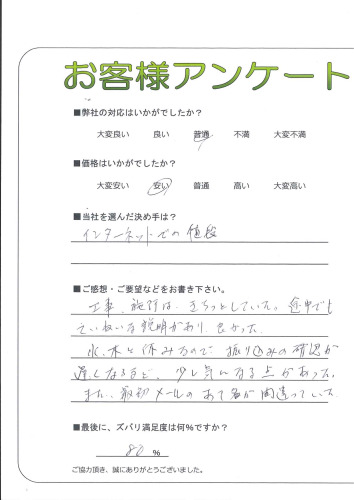 お客様アンケート
■弊社の対応はいかがでしたか？
大変良い 良い 普通 不満 大変不満
■価格はいかがでしたか？
大変安い 安い 普通 高い 大変高い
■当社を選んだ決め手は？
インターネットでの値段
■ご感想・ご要望などをお書き下さい。
工事、施行は、きちっとしていた。途中でも
ていねいな説明があり、良かった。
水、木と休みなので、振り込みの確認が
遅くなるなど、少し気になる点があった。
また、最初メールのあて名が間違っていた。
■最後に、ズバリ満足度は何%ですか？
80 %
ご協力頂き、誠にありがとうございました。